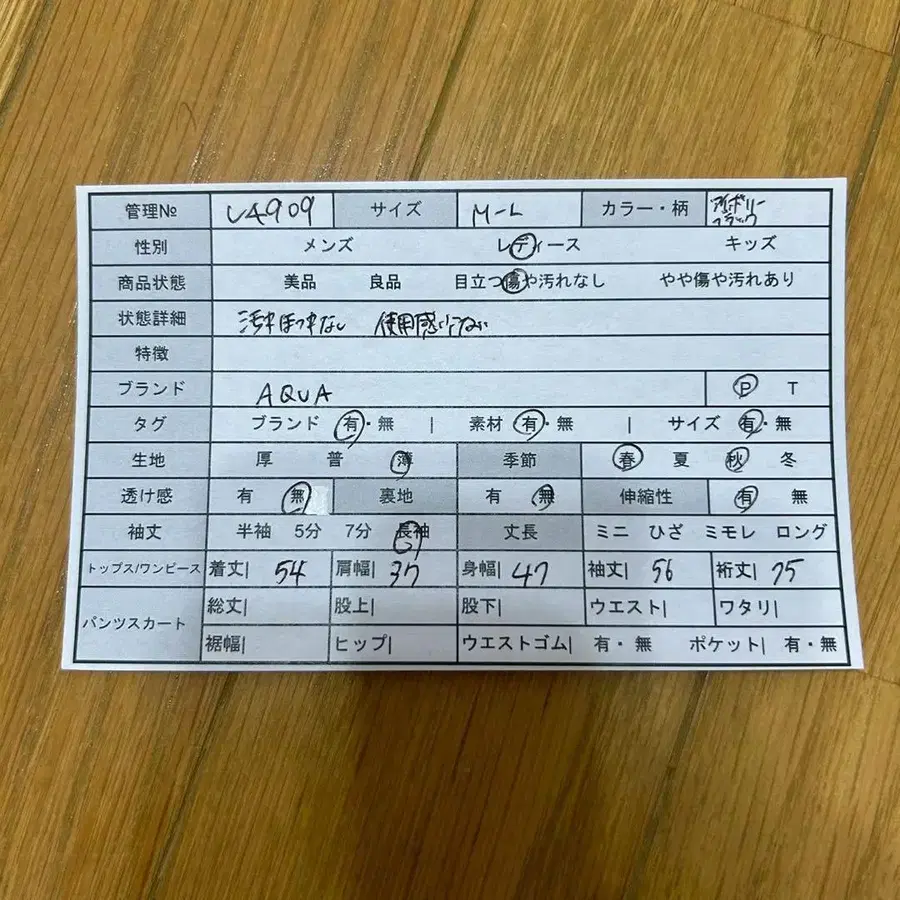 管理№ U4909 サイズ M-L カラー・柄 アイボリー
ブラック
性別 メンズ レディース キッズ
商品状態 美品 良品 目立つ傷や汚れなし やや傷や汚れあり
状態詳細 汚れほつれなし 使用感
特徴
ブランド AQUA P T
タグ ブランド 有・無 | 素材 有・無 | サイズ 有・無
生地 厚 普 薄 季節 春 夏 秋 冬
透け感 有 無 裏地 有 無 伸縮性 有 無
袖丈 半袖 5分 7分 長袖 丈長 ミニ ひざ ミモレ ロング
トップス/ワンピース 着丈| 54 肩幅| 37 身幅| 47 袖丈| 56 裄丈| 75
パンツスカート 総丈| 股上| 股下| ウエスト| ワタリ|
裾幅| ヒップ| ウエストゴム| 有・無 ポケット| 有・無